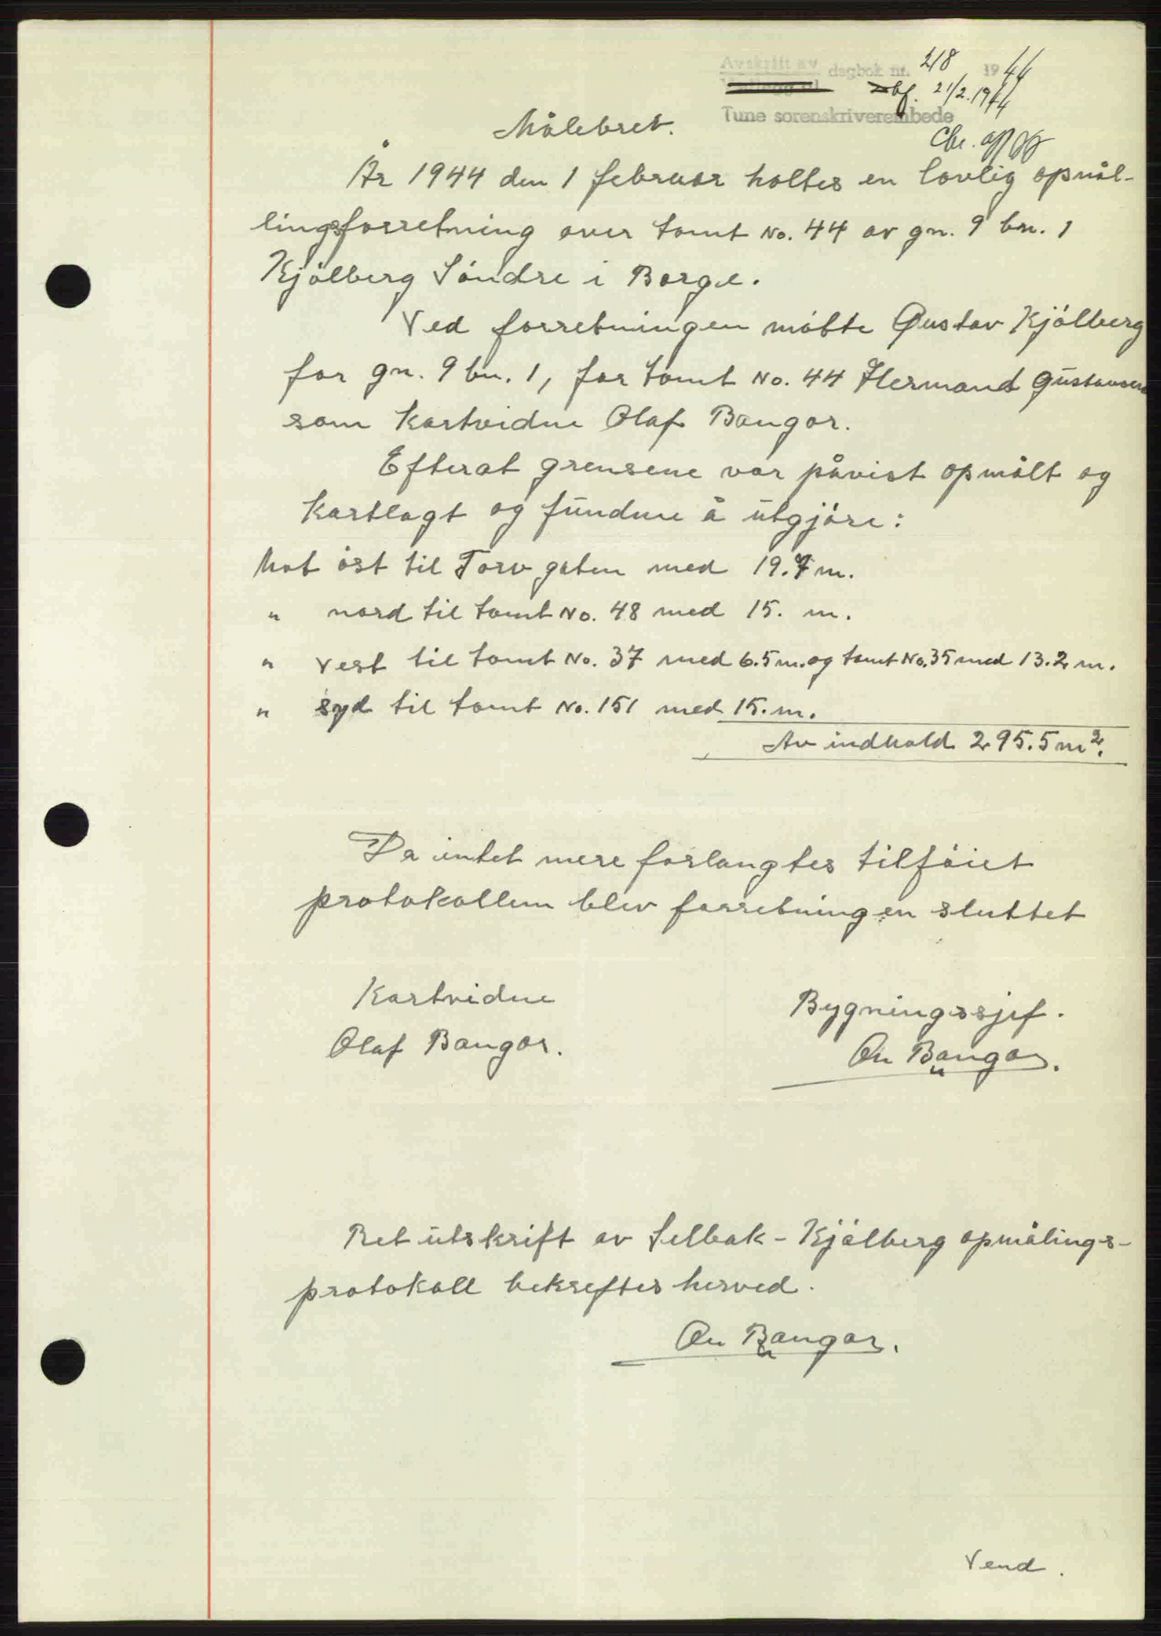 Avskrift av dagbok nr. 218 1944
bf. 21/2.1944
Tune sorenskriverembede
Målebret.
År 1944 den 1 februar holtes en lovlig opmål-
lingsforretning over tomt No. 44 av gn. 9 bn. 1
Kjölberg Söndre i Borge.
Ved forretningen mötte Gustav Kjölberg
for gn. 9 bn. 1, for tomt No. 44 Hermand Gustavsen
som kartvidne Olaf Bangor.
Efterat grensene var påvist opmålt og
kartlagt og fundne å utgjöre:
Mot öst til Torvgaten med 19.7 m.
" nord til tomt No. 48 med 15. m.
" vest til tomt No. 37 med 6.5 m. og tomt No. 35 med 13.2 m.
" syd til tomt No. 151 med 15. m.
Av indhold 295.5 m².
Da intet mere forlangtes tilföiet
protokollen blev forretningen sluttet
Kartvidne
Olaf Bangor.
Bygningssjef.
On Bangor.
Ret utskrift av Selbak - Kjölberg opmålings-
protokoll bekreftes herved.
On Bangor.
Vend.